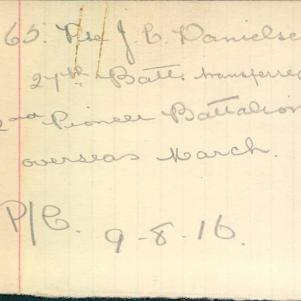 65. Pte J. C. Danielse
27th Batt. transferred
2nd Pioneer Battalion
overseas March.
P/C. 9-8-16.